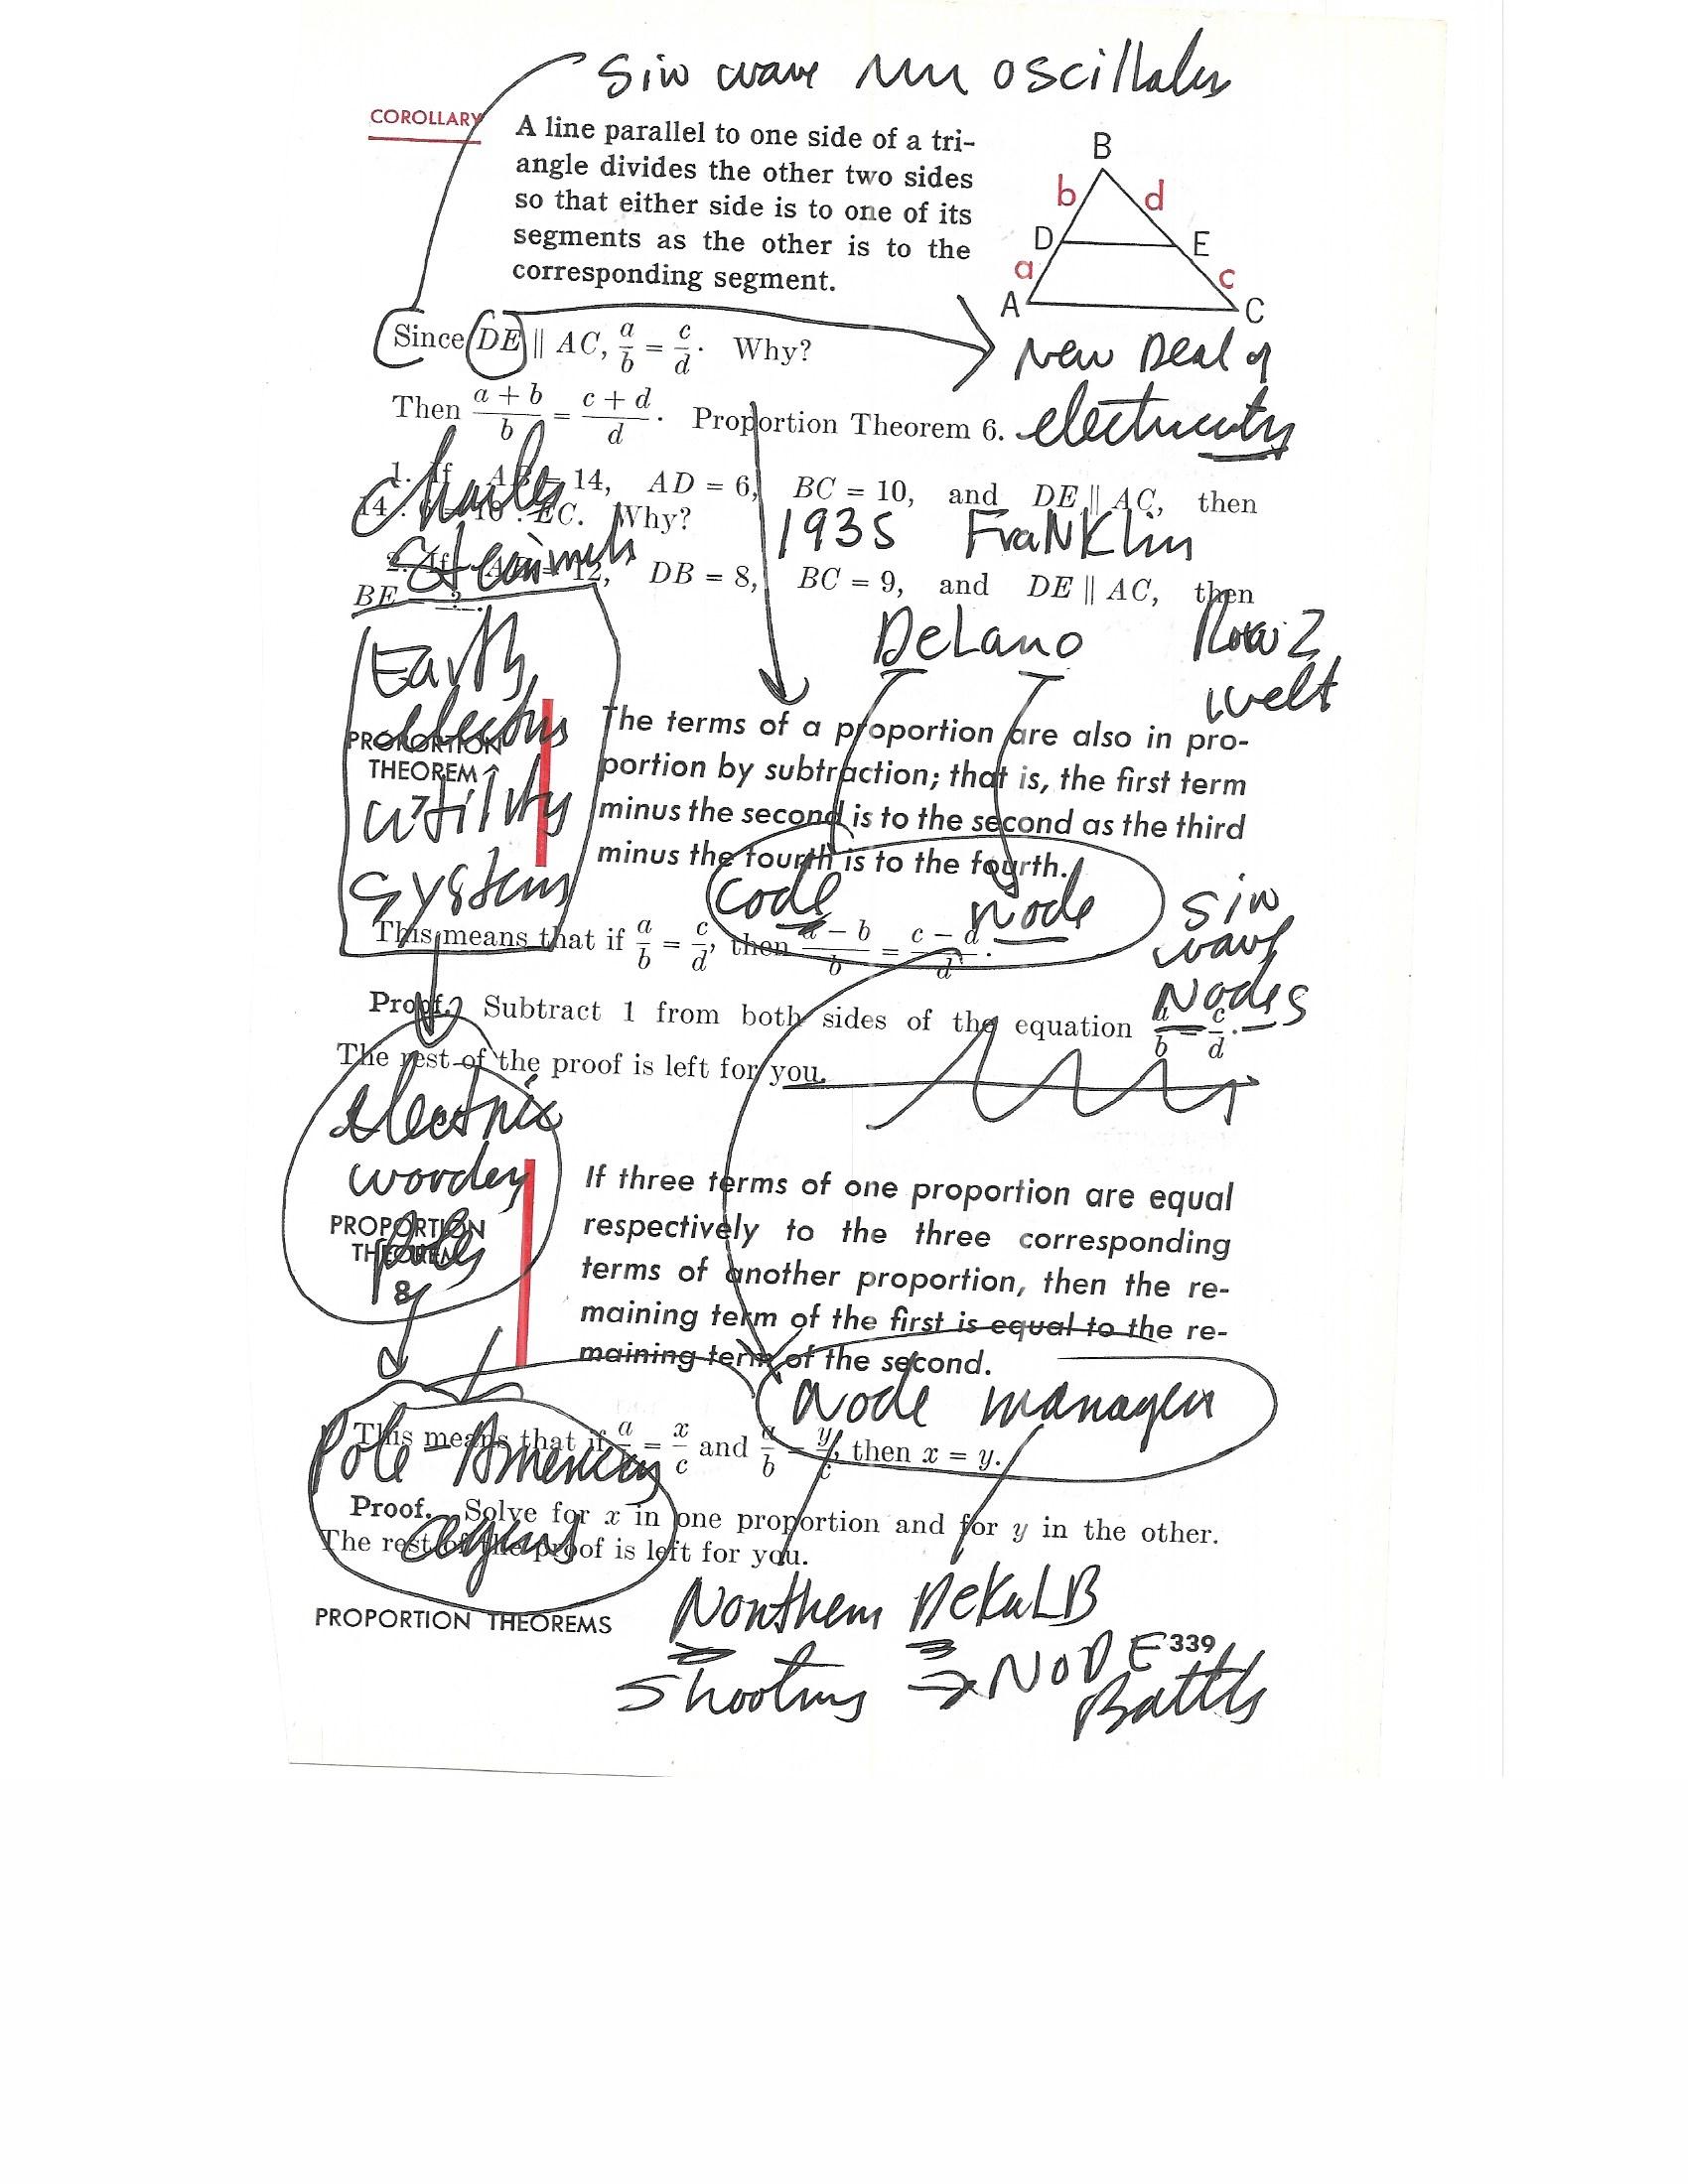 Sin wave oscillates
COROLLARY
A line parallel to one side of a tri-
angle divides the other two sides
so that either side is to one of its
segments as the other is to the
corresponding segment.
B
b d
D E
a c
A C
Since DE ∥ AC, a/b = c/d. Why?
New Deal of
Then (a + b)/b = (c + d)/d. Proportion Theorem 6.
electricity
1. If AB = 14, AD = 6, BC = 10, and DE ∥ AC, then
Charles
14 : 6 = 10 : EC. Why?
1935 FraNKlin
Steinmets
2. If AB = 12, DB = 8, BC = 9, and DE ∥ AC, then
BE = ?.
DeLano
welt
Earth
PROPORTION
THEOREM
7
utility
System
The terms of a proportion are also in pro-
portion by subtraction; that is, the first term
minus the second is to the second as the third
minus the fourth is to the fourth.
code node
sin
wave
Nodes
This means that if a/b = c/d, then (a − b)/b = (c − d)/d.
Proof. Subtract 1 from both sides of the equation a/b = c/d.
The rest of the proof is left for you.
electric
PROPORTION
THEOREM
8
poles
If three terms of one proportion are equal
respectively to the three corresponding
terms of another proportion, then the re-
maining term of the first is equal to the re-
maining term of the second.
Node manager
This means that if a/b = x/c and a/b = y/c, then x = y.
Pole - American
Proof. Solve for x in one proportion and for y in the other.
The rest of the proof is left for you.
Northern DeKaLB
PROPORTION THEOREMS
339
Shooting NODE
Battls